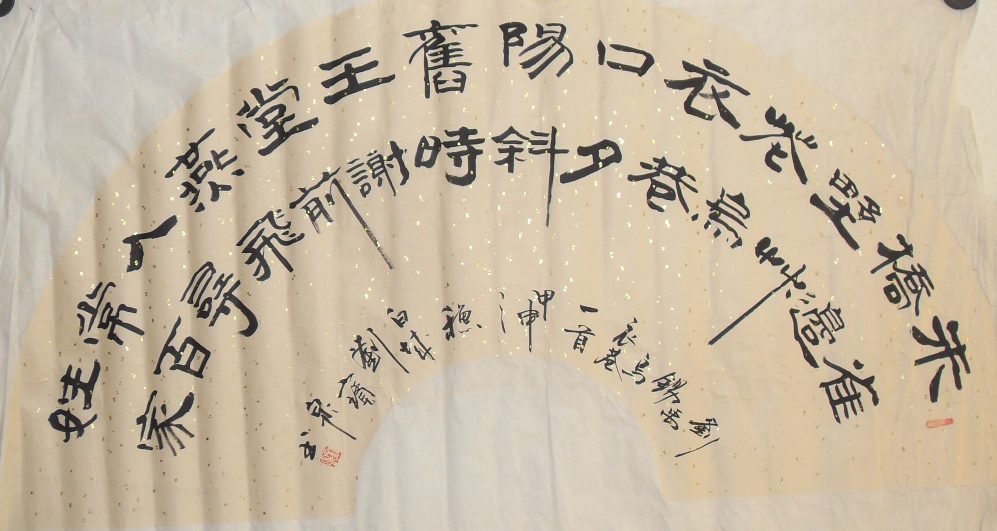 朱雀橋邊野草花烏衣巷口夕陽斜舊時王謝堂前燕飛入尋常百姓家
劉禹錫烏衣巷一首甲申穐白城劉書